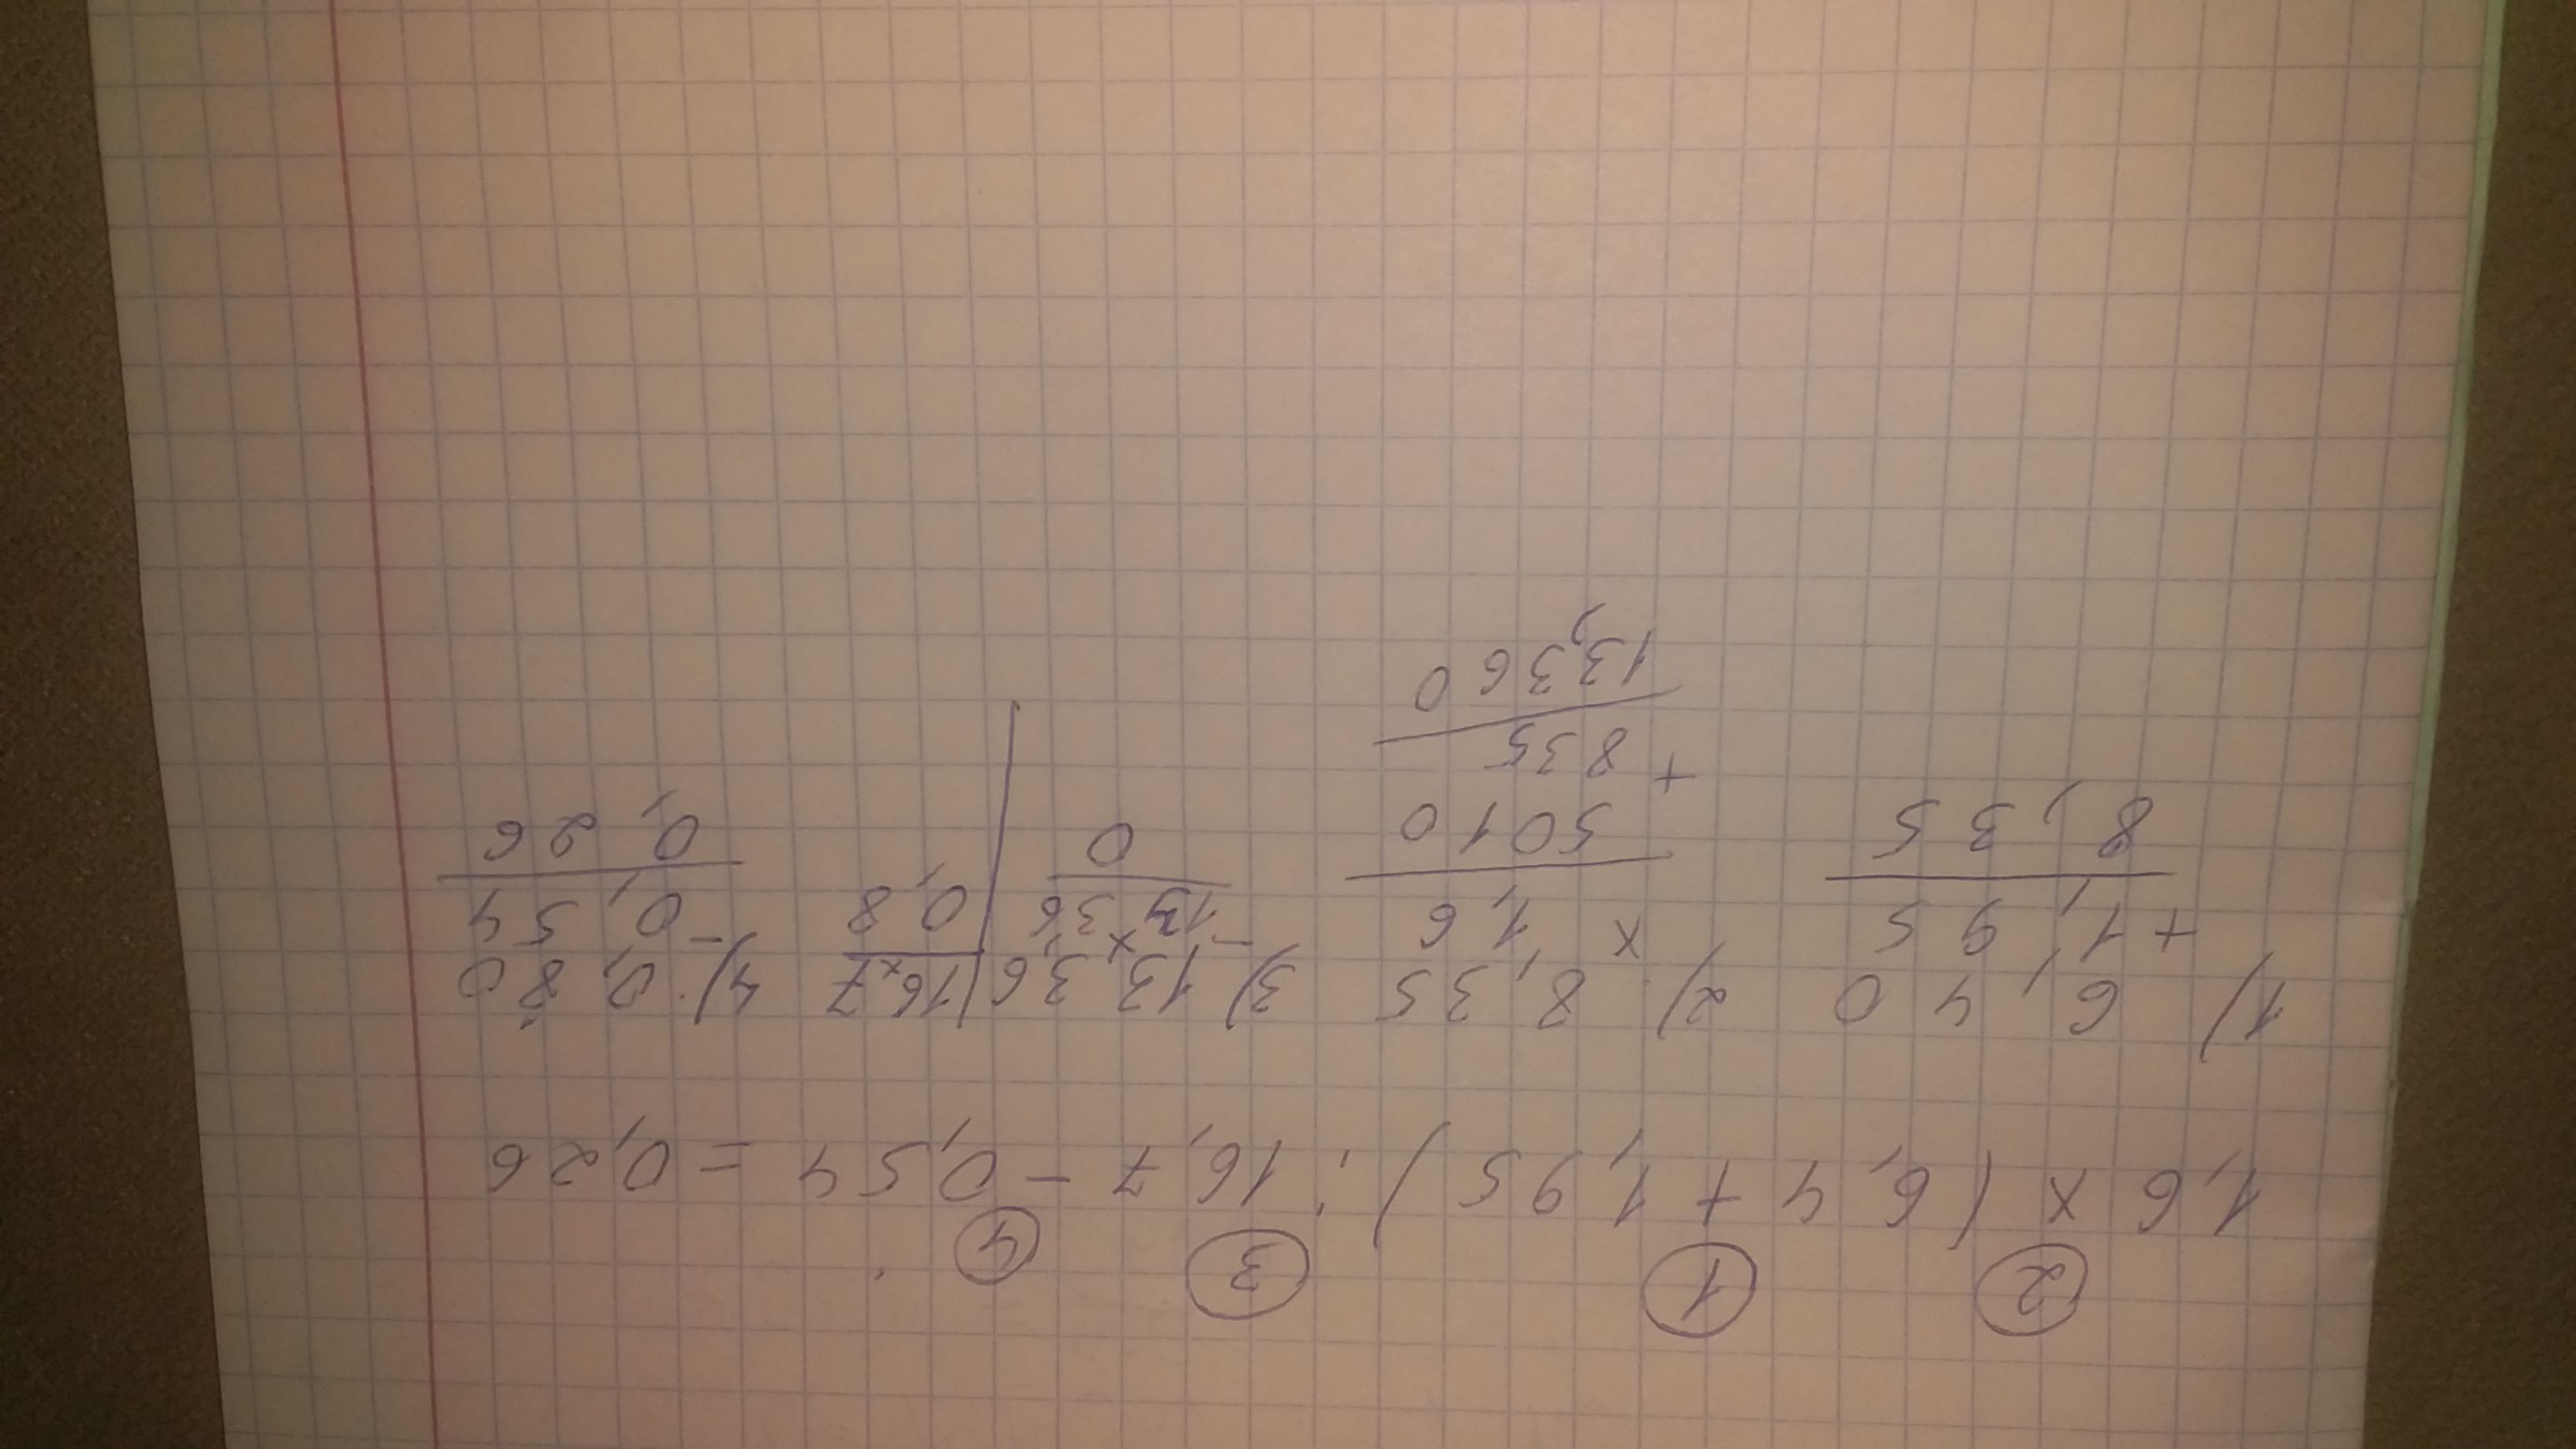 2 1 3 4
1,6 x (6,4 + 1,95) : 16,7 - 0,54 = 0,26
1) 6,40 2) 8,35 3) 13,36 16,7 4) 0,80
+ 1,95 x 1,6 - 1336 0,8 - 0,54
8,35 5010 0 0,26
+ 835
13,360